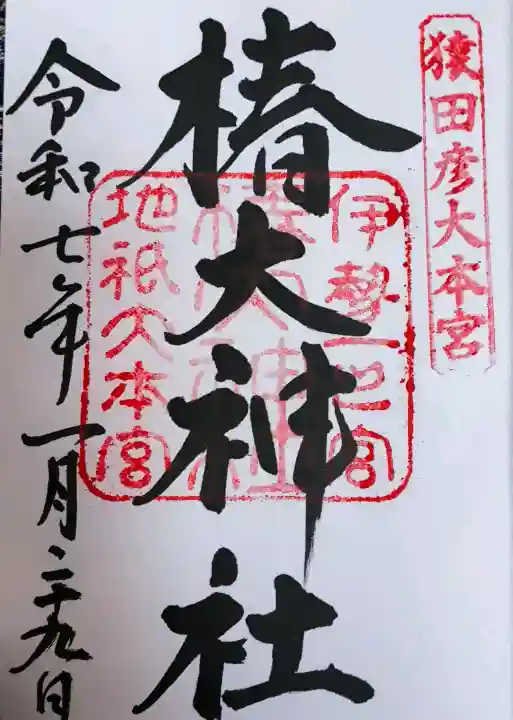 猿田彦大本宮
椿大神社
伊勢一宮
椿大神社
地祇大本宮
令和七年一月二十九日